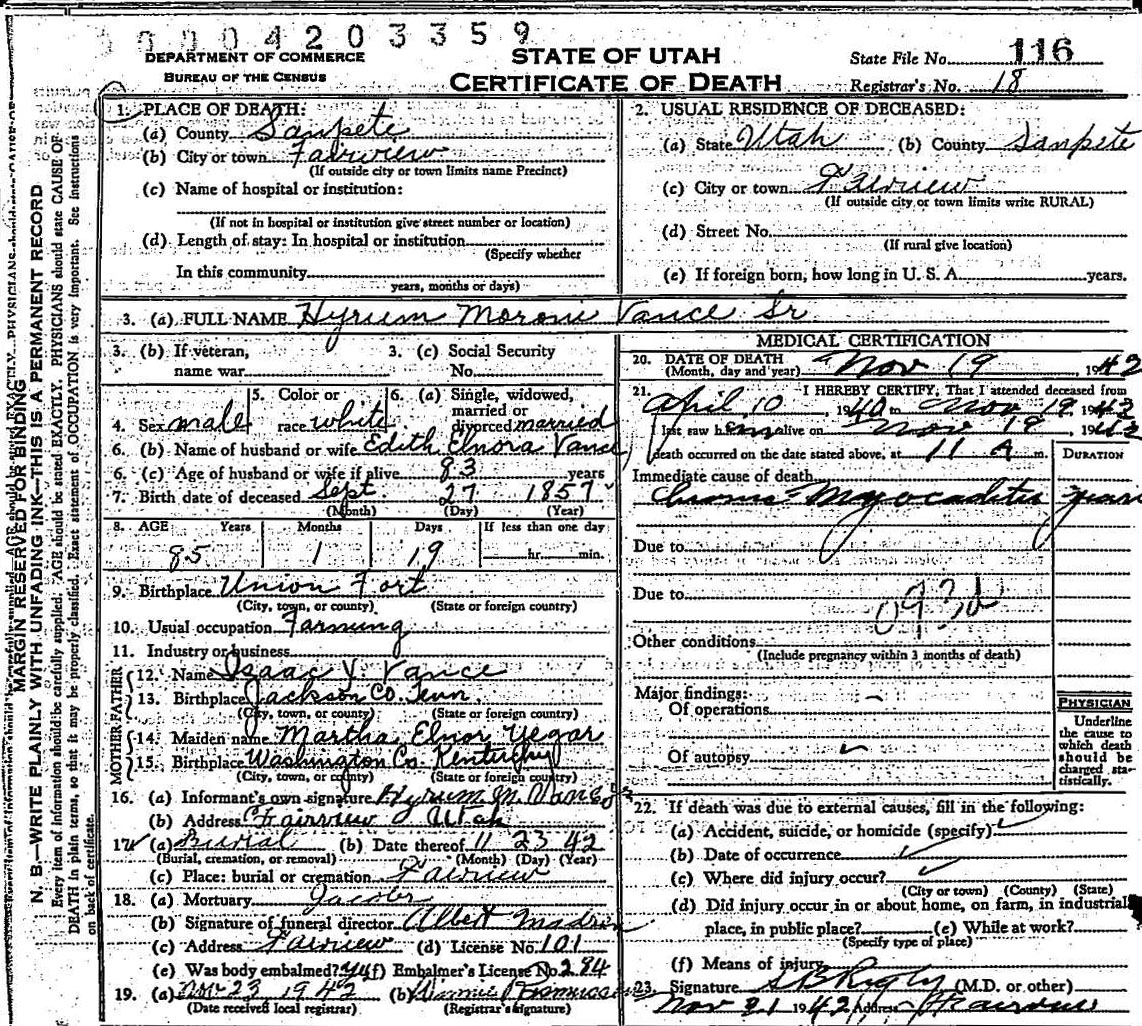 0004203359
DEPARTMENT OF COMMERCE
BUREAU OF THE CENSUS
STATE OF UTAH
CERTIFICATE OF DEATH
State File No. 116
Registrar's No. 18
MARGIN RESERVED FOR BINDING
N. B.—WRITE PLAINLY WITH UNFADING INK—THIS IS A PERMANENT RECORD
Every item of information should be carefully supplied. AGE should be stated EXACTLY. PHYSICIANS should state CAUSE OF
DEATH in plain terms, so that it may be properly classified. Exact statement of OCCUPATION is very important. See instructions
on back of certificate.
1. PLACE OF DEATH:
(a) County Sanpete
(b) City or town Fairview
(If outside city or town limits name Precinct)
(c) Name of hospital or institution:
(If not in hospital or institution give street number or location)
(d) Length of stay: In hospital or institution
(Specify whether
In this community
years, months or days)
2. USUAL RESIDENCE OF DECEASED:
(a) State Utah (b) County Sanpete
(c) City or town Fairview
(If outside city or town limits write RURAL)
(d) Street No.
(If rural give location)
(e) If foreign born, how long in U. S. A. years.
3. (a) FULL NAME Hyrum Moroni Vance Sr
3. (b) If veteran, name war
3. (c) Social Security No.
4. Sex male
5. Color or race white
6. (a) Single, widowed, married or divorced married
6. (b) Name of husband or wife Edith Elnora Vance
6. (c) Age of husband or wife if alive 83 years
7. Birth date of deceased Sept 27 1857
(Month) (Day) (Year)
8. AGE Years Months Days If less than one day
85 1 19 hr. min.
9. Birthplace Union Fort
(City, town, or county) (State or foreign country)
10. Usual occupation Farming
11. Industry or business
FATHER
12. Name Isaac Y. Vance
13. Birthplace Jackson Co. Tenn
(City, town, or county) (State or foreign country)
MOTHER
14. Maiden name Martha Elnor Yegar
15. Birthplace Washington Co. Kentucky
(City, town, or county) (State or foreign country)
16. (a) Informant's own signature Hyrum M. Vance Jr
(b) Address Fairview Utah
17. (a) Burial (b) Date thereof 11 23 42
(Burial, cremation, or removal) (Month) (Day) (Year)
(c) Place: burial or cremation Fairview
18. (a) Mortuary Jacobs
(b) Signature of funeral director Albert Madrin
(c) Address Fairview (d) License No. 101
(e) Was body embalmed? Yes (f) Embalmer's License No. 284
19. (a) Nov 23 1942 (b)
(Date received local registrar) (Registrar's signature)
MEDICAL CERTIFICATION
20. DATE OF DEATH
(Month, day and year) Nov 19 1942
21. I HEREBY CERTIFY, That I attended deceased from
April 10, 1940 to Nov 19 1942
I last saw him alive on Nov 18, 1942
death occurred on the date stated above, at 11 A m.
DURATION
Immediate cause of death
Chronic Myocaditis years
Due to
Due to
093d
Other conditions
(Include pregnancy within 3 months of death)
Major findings:
Of operations -
Of autopsy
PHYSICIAN
Underline
the cause to
which death
should be
charged sta-
tistically.
22. If death was due to external causes, fill in the following:
(a) Accident, suicide, or homicide (specify)
(b) Date of occurrence
(c) Where did injury occur?
(City or town) (County) (State)
(d) Did injury occur in or about home, on farm, in industrial
place, in public place? (e) While at work?
(Specify type of place)
(f) Means of injury
23. Signature S B Rigby (M.D. or other)
Nov 21 1942 Address Fairview